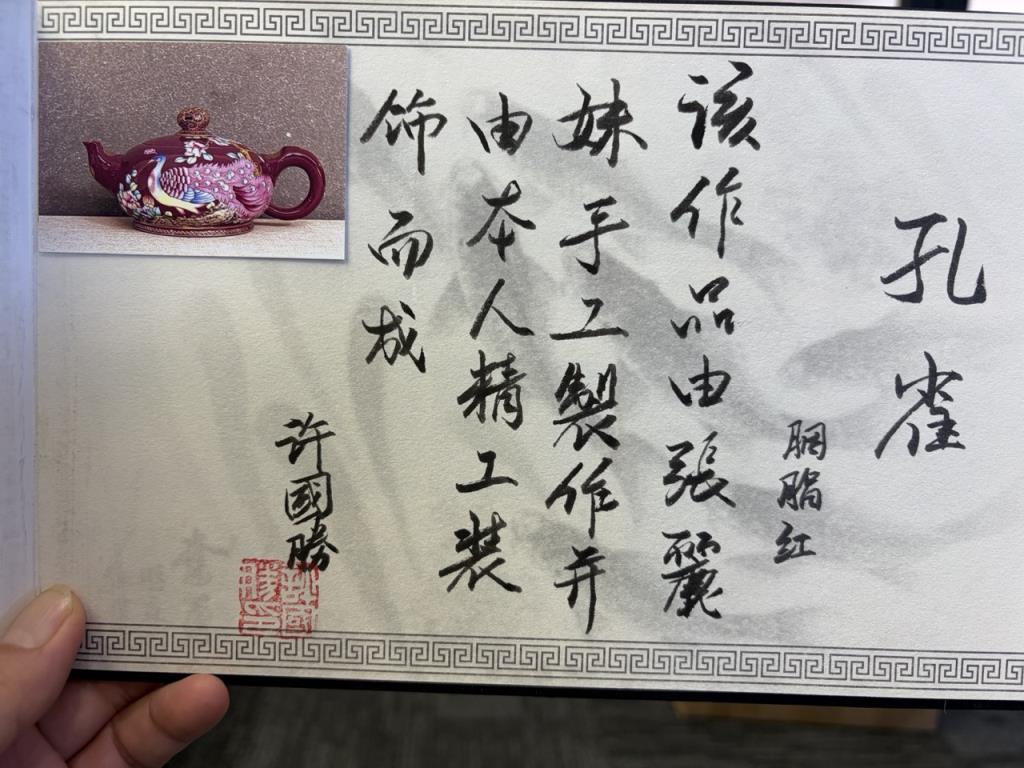 孔雀
胭脂红
该作品由張麗
妹手工製作并
由本人精工装
饰而成
许國勝